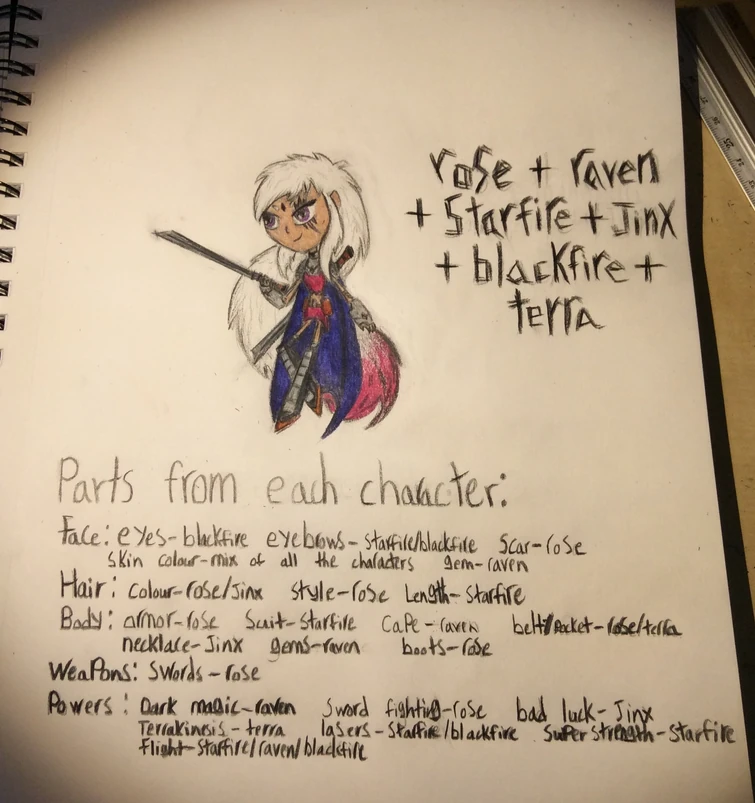 rose + raven
+ Starfire + Jinx
+ blackfire +
terra
Parts from each character:
Face: eyes- blackfire eyebrows- Starfire/blackfire Scar- rose
Skin colour- mix of all the characters gem- raven
Hair: colour- rose/Jinx Style- rose Length- Starfire
Body: armor- rose Suit- Starfire Cape- raven belt/Pocket- rose/terra
necklace- Jinx gems- raven boots- rose
Weapons: Swords- rose
Powers: Dark magic- raven Sword fighting- rose bad luck- Jinx
Terrakinesis- terra lasers- Starfire/blackfire Super Strength- Starfire
Flight- Starfire/raven/blackfire